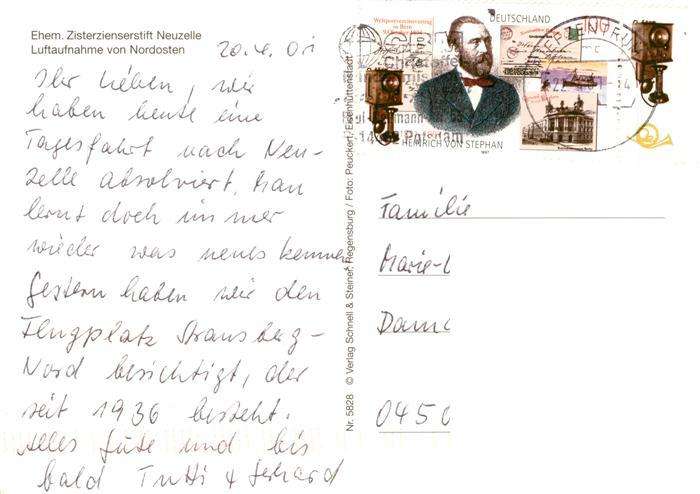 Ehem. Zisterzienserstift Neuzelle
Luftaufnahme von Nordosten
20.4.01
Ihr Lieben, wir
haben heute eine
Tagesfahrt nach Neu-
zelle absolviert. Man
lernt doch immer
wieder was neues kennen
Gestern haben wir den
Flugplatz Strausberg-
Nord besichtigt, der
seit 1936 besteht.
Alles Gute und bis
bald Tutti + Gerhard
Nr. 5828 © Verlag Schnell & Steiner, Regensburg / Foto: Peuckert, Eisenhüttenstadt
DEUTSCHLAND
HEINRICH VON STEPHAN
1997
Potsdam
Familie
Marie-L
0450